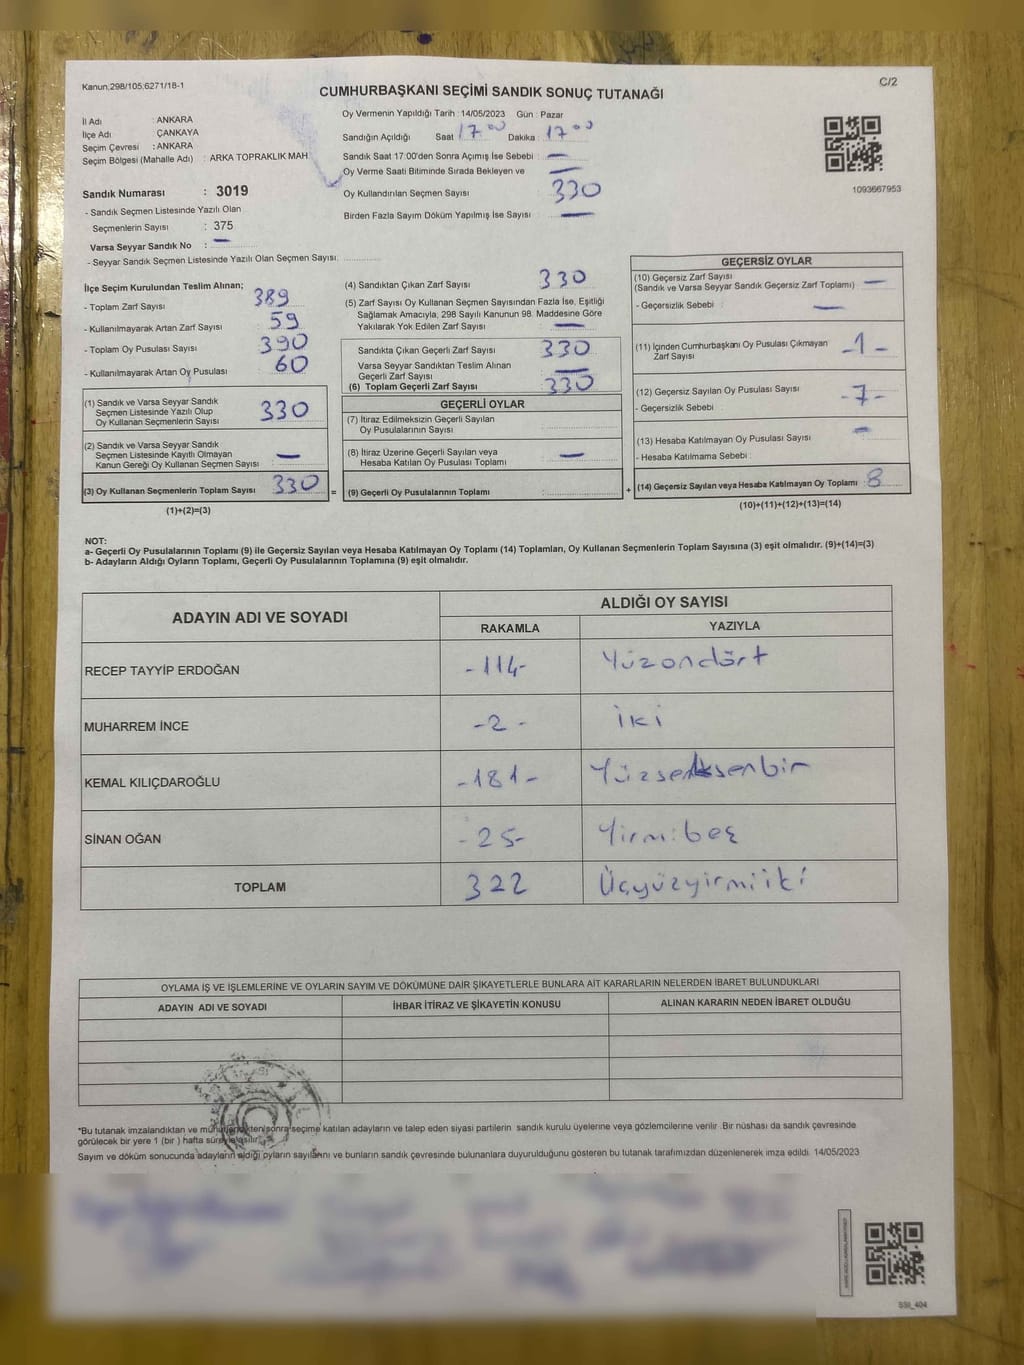 Kanun;298/105;6271/18-1
C/2
CUMHURBAŞKANI SEÇİMİ SANDIK SONUÇ TUTANAĞI
İl Adı : ANKARA
İlçe Adı : ÇANKAYA
Seçim Çevresi : ANKARA
Seçim Bölgesi (Mahalle Adı) : ARKA TOPRAKLIK MAH
Sandık Numarası : 3019
- Sandık Seçmen Listesinde Yazılı Olan
Seçmenlerin Sayısı : 375
Varsa Seyyar Sandık No : —
- Seyyar Sandık Seçmen Listesinde Yazılı Olan Seçmen Sayısı:
Oy Vermenin Yapıldığı Tarih : 14/05/2023 Gün : Pazar
Sandığın Açıldığı Saat 17 00 Dakika : 17 00
Sandık Saat 17:00'den Sonra Açımış İse Sebebi : —
Oy Verme Saati Bitiminde Sırada Bekleyen ve —
Oy Kullandırılan Seçmen Sayısı 330
Birden Fazla Sayım Döküm Yapılmış İse Sayısı : —
1093667953
İlçe Seçim Kurulundan Teslim Alınan;
- Toplam Zarf Sayısı : 389
- Kullanılmayarak Artan Zarf Sayısı : 59
- Toplam Oy Pusulası Sayısı : 390
- Kullanılmayarak Artan Oy Pusulası : 60
(1) Sandık ve Varsa Seyyar Sandık
Seçmen Listesinde Yazılı Olup
Oy Kullanan Seçmenlerin Sayısı : 330
(2) Sandık ve Varsa Seyyar Sandık
Seçmen Listesinde Kayıtlı Olmayan
Kanun Gereği Oy Kullanan Seçmen Sayısı : —
(3) Oy Kullanan Seçmenlerin Toplam Sayısı : 330
(1)+(2)=(3)
(4) Sandıktan Çıkan Zarf Sayısı : 330
(5) Zarf Sayısı Oy Kullanan Seçmen Sayısından Fazla İse, Eşitliği
Sağlamak Amacıyla, 298 Sayılı Kanunun 98. Maddesine Göre
Yakılarak Yok Edilen Zarf Sayısı : —
Sandıkta Çıkan Geçerli Zarf Sayısı : 330
Varsa Seyyar Sandıktan Teslim Alınan
Geçerli Zarf Sayısı : —
(6) Toplam Geçerli Zarf Sayısı : 330
GEÇERLİ OYLAR
(7) İtiraz Edilmeksizin Geçerli Sayılan
Oy Pusulalarının Sayısı :
(8) İtiraz Üzerine Geçerli Sayılan veya
Hesaba Katılan Oy Pusulası Toplamı : —
= (9) Geçerli Oy Pusulalarının Toplamı :
GEÇERSİZ OYLAR
(10) Geçersiz Zarf Sayısı
(Sandık ve Varsa Seyyar Sandık Geçersiz Zarf Toplamı) —
- Geçersizlik Sebebi : —
(11) İçinden Cumhurbaşkanı Oy Pusulası Çıkmayan
Zarf Sayısı -1-
(12) Geçersiz Sayılan Oy Pusulası Sayısı -7-
- Geçersizlik Sebebi :
(13) Hesaba Katılmayan Oy Pusulası Sayısı —
- Hesaba Katılmama Sebebi :
+ (14) Geçersiz Sayılan veya Hesaba Katılmayan Oy Toplamı : 8
(10)+(11)+(12)+(13)=(14)
NOT:
a- Geçerli Oy Pusulalarının Toplamı (9) ile Geçersiz Sayılan veya Hesaba Katılmayan Oy Toplamı (14) Toplamları, Oy Kullanan Seçmenlerin Toplam Sayısına (3) eşit olmalıdır. (9)+(14)=(3)
b- Adayların Aldığı Oyların Toplamı, Geçerli Oy Pusulalarının Toplamına (9) eşit olmalıdır.
ADAYIN ADI VE SOYADI ALDIĞI OY SAYISI
RAKAMLA YAZIYLA
RECEP TAYYİP ERDOĞAN -114- Yüzondört
MUHARREM İNCE -2- iki
KEMAL KILIÇDAROĞLU -181- Yüzseksenbir
SİNAN OĞAN -25- Yirmibeş
TOPLAM 322 Üçyüzyirmiiki
OYLAMA İŞ VE İŞLEMLERİNE VE OYLARIN SAYIM VE DÖKÜMÜNE DAİR ŞİKAYETLERLE BUNLARA AİT KARARLARIN NELERDEN İBARET BULUNDUKLARI
ADAYIN ADI VE SOYADI İHBAR İTİRAZ VE ŞİKAYETİN KONUSU ALINAN KARARIN NEDEN İBARET OLDUĞU
*Bu tutanak imzalandıktan ve mühürlendikten sonra seçime katılan adayların ve talep eden siyasi partilerin sandık kurulu üyelerine veya gözlemcilerine verilir. Bir nüshası da sandık çevresinde
görülecek bir yere 1 (bir ) hafta süreyle asılır.
Sayım ve döküm sonucunda adayların aldığı oyların sayılarını ve bunların sandık çevresinde bulunanlara duyurulduğunu gösteren bu tutanak tarafımızdan düzenlenerek imza edildi. 14/05/2023
SSI_404